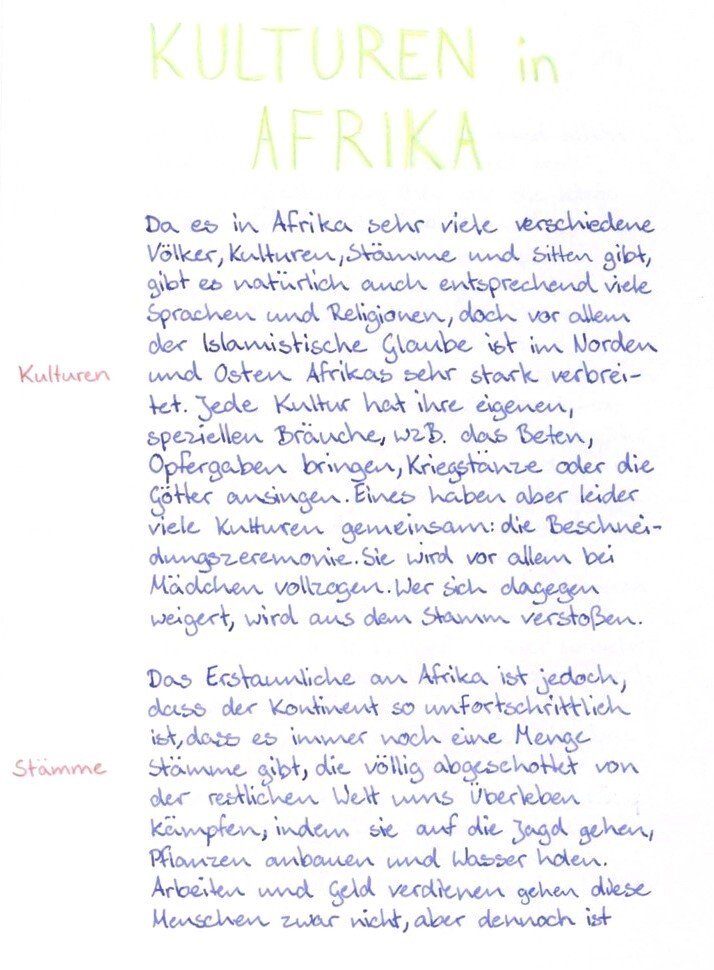 KULTUREN in
AFRIKA
Da es in Afrika sehr viele verschiedene
Völker, Kulturen, Stämme und Sitten gibt,
gibt es natürlich auch entsprechend viele
Sprachen und Religionen, doch vor allem
der Islamistische Glaube ist im Norden
Kulturen und Osten Afrikas sehr stark verbrei-
tet. Jede Kultur hat ihre eigenen,
speziellen Bräuche, wzB. das Beten,
Opfergaben bringen, Kriegstänze oder die
Götter ansingen. Eines haben aber leider
viele Kulturen gemeinsam: die Beschnei-
dungszeremonie. Sie wird vor allem bei
Mädchen vollzogen. Wer sich dagegen
weigert, wird aus dem Stamm verstoßen.
Das Erstaunliche an Afrika ist jedoch,
dass der Kontinent so unfortschrittlich
ist, dass es immer noch eine Menge
Stämme Stämme gibt, die völlig abgeschottet von
der restlichen Welt ums Überleben
kämpfen, indem sie auf die Jagd gehen,
Pflanzen anbauen und Wasser holen.
Arbeiten und Geld verdienen gehen diese
Menschen zwar nicht, aber dennoch ist